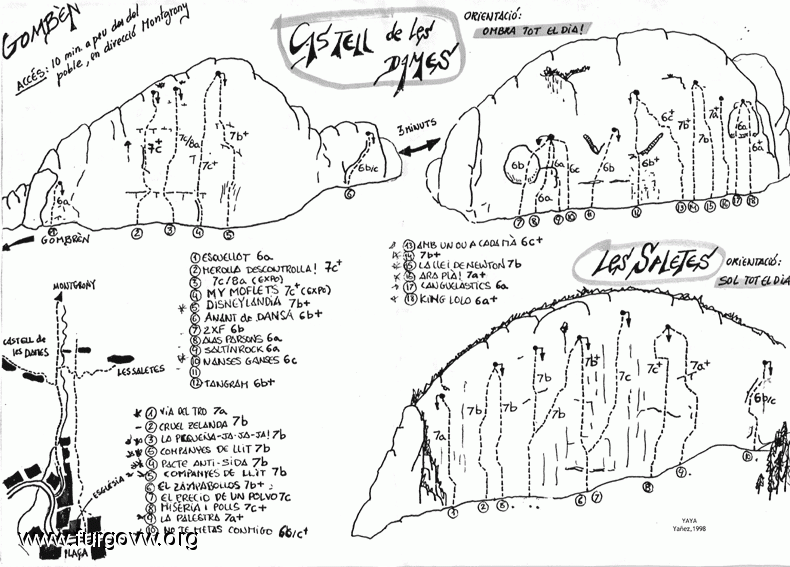 GOMBRÈN
ACCÉS: 10 min. a peu des del
poble, en direcció Montgrony
CASTELL de les
DAMES
ORIENTACIÓ:
OMBRA TOT EL DIA!
3 MINUTS
6a
7c+
7c/8a
7c+
7b+
6b/c
1
2
3
4
5
6
6b
6a
6a
6c
6b
6b+
6c+
7b+
7b
7a+
6a
6a+
7
8
9
10
11
13
14
15
16
17
18
GOMBRÈN
MONTGRONY
CASTELL de
les DAMES
LES SALETES
ESGLÉSIA
PLAÇA
1 ESQUELLOT 6a
2 MEROLLA DESCONTROLLA! 7c+
3 7c/8a (EXPO)
4 MY MOFLETS 7c+ (EXPO)
5 DISNEYLANDIA 7b+
6 ANANT de DANSA 6b+
7 2XF 6b
8 ALAS PARSONS 6a
9 SALTINROCK 6a
10 NANSES GANSES 6c
11
12 TANGRAM 6b+
13 AMB UN OU A CADA MÀ 6c+
14 7b+
15 LA LLEI DE NEWTON 7b
16 ARA PLA! 7a+
17 CANGUELASTICS 6a
18 KING LOLO 6a+
LES SALETES
ORIENTACIÓ:
SOL TOT EL DIA
1 VIA DEL TRO 7a
2 CRUEL ZELANDA 7b
3 LA PEQUEÑA-JA-JA-JA! 7b
5 COMPANYES DE LLIT 7b
4 PACTE ANTI-SIDA 7b
5 COMPANYES DE LLIT 7b
6 EL ZAMPABOLLOS 7b+
7 EL PRECIO DE UN POLVO 7c
8 MISERIA I POLLS 7c+
9 LA PALESTRA 7a+
10 NO TE METAS CONMIGO 6b/c+
7a
7b
7b
7b
7b+
7c
7c+
7a+
6b/c
1
2
3
6
7
8
9
10
YAYA
Yañez, 1998
www.furgovw.org